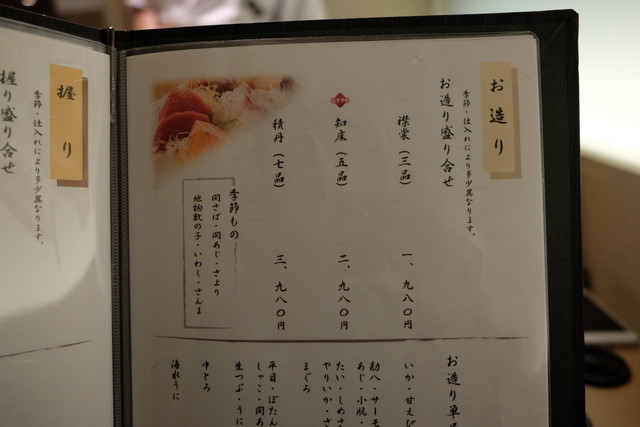 お造り
季節・仕入れにより多少異なります。
お造り盛り合せ
襟裳（三品） 一、九八〇円
知床（五品） 二、九八〇円
積丹（七品） 三、九八〇円
季節もの
関さば・関あじ・さより
地物数の子・いわし・さんま
お造り単
いか・甘えび
勘八・サーモ
あじ・小肌・
たい・しめさ
やりいか・さ
まぐろ
平目・ぼたん
しゃこ・関あ
生つぶ・うに
中とろ
塩水うに
握り
季節・仕入れにより多少異なります。
握り盛り合せ